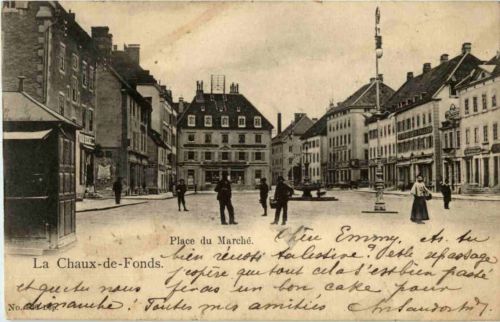 Place du Marché.
La Chaux-de-Fonds.
Chère Emmy. As-tu
bien réussi ta lessive? Petit repassage
j'espère que tout cela s'est bien passé
et que tu nous feras un bon cake pour
dimanche! Toutes mes amitiés
No.